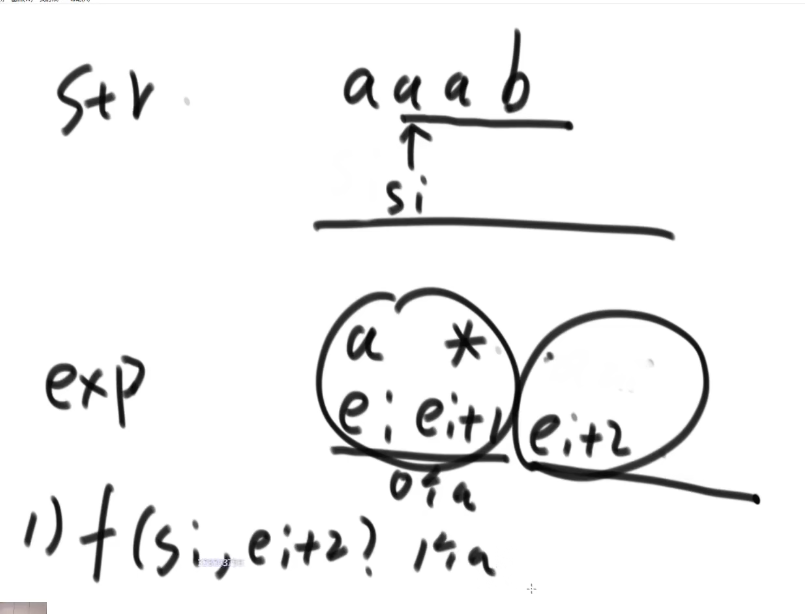 str a a a b
si
exp a *
ei ei+1 ei+2
0个a
1) f(si, ei+2) 1个a